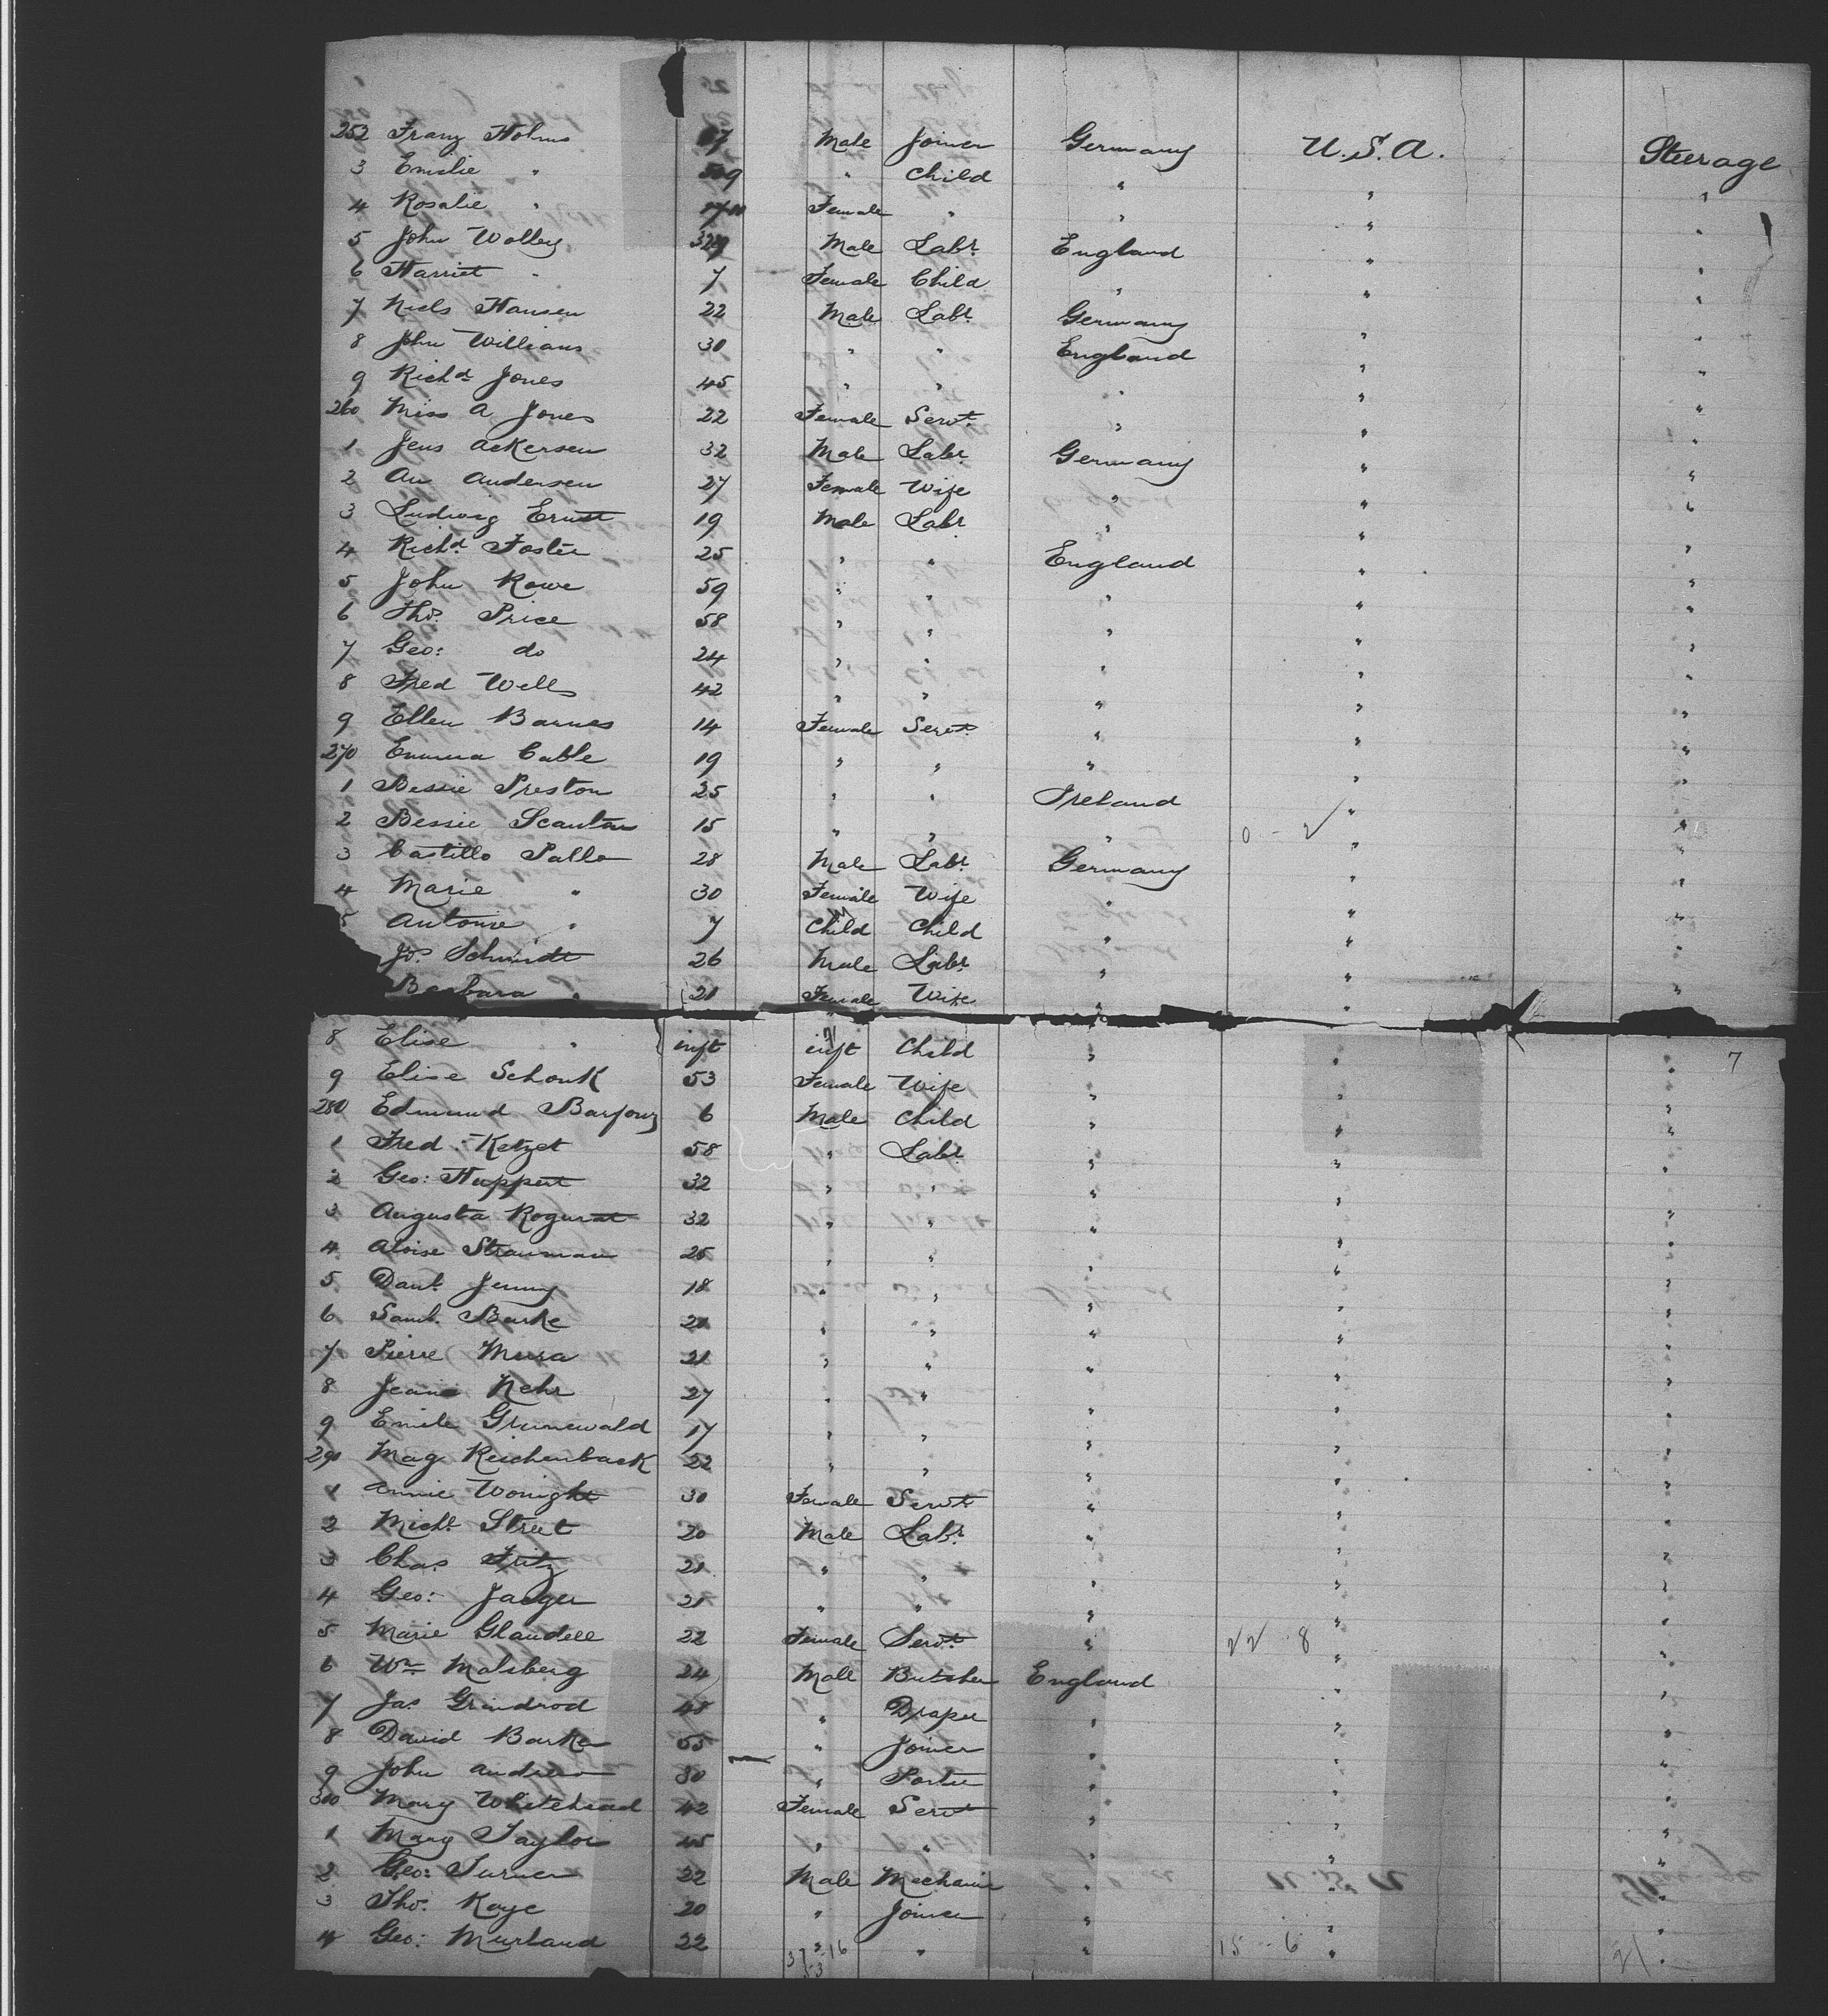 252 Franz Holms Male Joiner Germany U.S.A. Steerage
3 Emilie " 9 " Child " " "
4 Rosalie " Female " " " "
5 John Wolley Male Labr England " "
6 Harriet " 7 Female Child " " "
7 Niels Hansen 22 Male Labr Germany " "
8 John Williams 30 " " England " "
9 Richd Jones 45 " " " " "
260 Miss A Jones 22 Female Servt " " "
1 Jens Ackersen 32 Male Labr Germany " "
2 An Andersen 27 Female Wife " " "
3 Ludwig Ernst 19 Male Labr " " "
4 Richd Foster 25 " " England " "
5 John Rowe 59 " " " " "
6 Tho. Price 58 " " " " "
7 Geo: do 24 " " " " "
8 Fred Wells 42 " " " " "
9 Ellen Barnes 14 Female Servt " " "
270 Emma Cable 19 " " " " "
1 Bessie Preston 25 " " Ireland " "
2 Bessie Scanlan 15 " " " 0 - 2 " "
3 Castillo Palla 28 Male Labr Germany " "
4 Marie " 30 Female Wife " " "
5 Antoine " 7 Child Child " " "
Jos. Schmidt 26 Male Labr " " "
Barbara " 21 Female Wife " " "
8 Elise " inft inft Child " " " 7
9 Elise Schonk 53 Female Wife " " "
280 Edmund Barfouz 6 Male Child " " "
1 Fred Ketzet 58 " Labr " " "
2 Geo: Huppert 32 " " " " "
3 Augusta Rogurat 32 " " " " "
4 Aloise Strauman 25 " " " " "
5 Danl. Jenny 18 " " " " "
6 Saml. Burke 21 " " " " "
7 Pierre Mura 21 " " " " "
8 Jean Nehr 27 " " " " "
9 Emile Grunewald 17 " " " " "
290 Mag Reichenback 22 " " " " "
1 Annie Wonight 30 Female Servt " " "
2 Michl Street 20 Male Labr " " "
3 Chas Fritz 21 " " " " "
4 Geo: Jaeger 21 " " " " "
5 Marie Glaudell 22 Female Servt " 22 8 " "
6 Wm Malsberg 24 Male Butcher England " "
7 Jas Grindrod 48 " Draper " " "
8 David Barker 55 " Joiner " " "
9 John Andrew 30 " Porter " " "
300 Mary Whitehead 42 Female Servt " " "
1 Mary Taylor 45 " " " " "
2 Geo: Turner 22 Male Mechanic " " "
3 Tho. Kaye 20 " Joiner " " "
4 Geo: Murland 22 " " " 15 - 6 " "
37 16 21
53